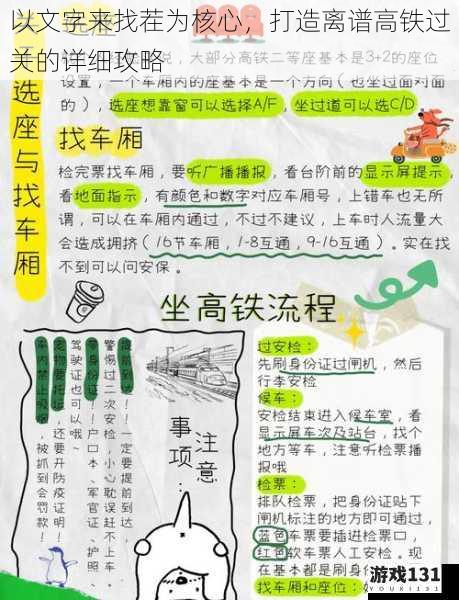 以文字来找茬为核心，打造离谱高铁过
关的详细攻略
选座与找车厢
大部分高铁二等座基本是3+2的座位
设置，一个车厢内的座基本是一个方向（也坐过面对面
的），选座想靠窗可以选择A/F，坐过道可以选C/D
找车厢
检完票找车厢，要听广播播报，看台阶前的显示屏提示，
看地面指示，有颜色和数字对应车厢号，上错车也无所
谓，可以在车厢内通过，不过不建议，上车时人流量大
会造成拥挤（16节车厢，1-8互通，9-16互通）。实在找
不到可以问安保。
坐高铁流程
注意事项：
提前到达！一定要提前到达，
警惕过二次安检，小心耽误赶不上
带身份证！户口本、军官证、护照、
驾驶证也可以哦~
宠物要托运，还要开防疫证明！
车内禁止吸烟，被抓到会罚款！
过安检：
先刷身份证过闸机，然后
行李安检
候车：
安检结束进入候车室，看
显示屏车次及站台，找个
地方等车，注意听检票播
报哦
检票：
排队检票，把身份证贴下
闸机标注的地方即可通过，
蓝色车票要插进检票口，
红色软车票人工安检。现
在基本都是刷身份
找车厢和座位：
游戏131
YOUXI131